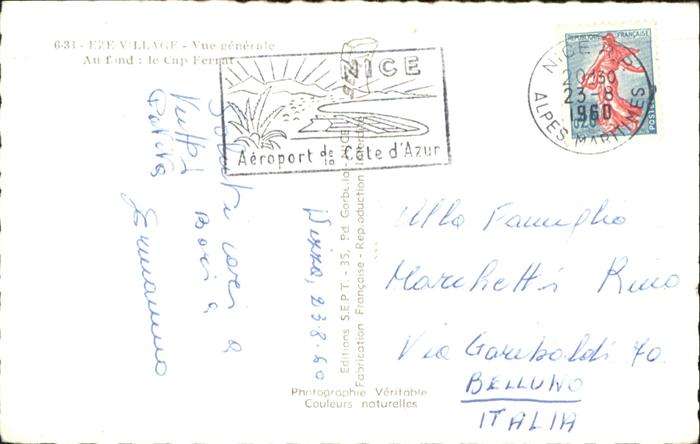 6-31 - EZE VILLAGE - Vue générale
Au fond : le Cap Ferrat
NICE
Aéroport de la Côte d'Azur
NICE
20 30
23-8
1960
ALPES MARITIMES
REPUBLIQUE FRANÇAISE
POSTES
cari
a
Tutti
Baci a
Nizza, 23.8.60
Editions S.E.P.T. - 35, Rd. Gorbella - NICE
Fabrication Française - Reproduction interdite
Alla Famiglia
Marchetti Rino
Via Garibaldi 70
BELLUNO
ITALIA
Photographie Véritable
Couleurs naturelles